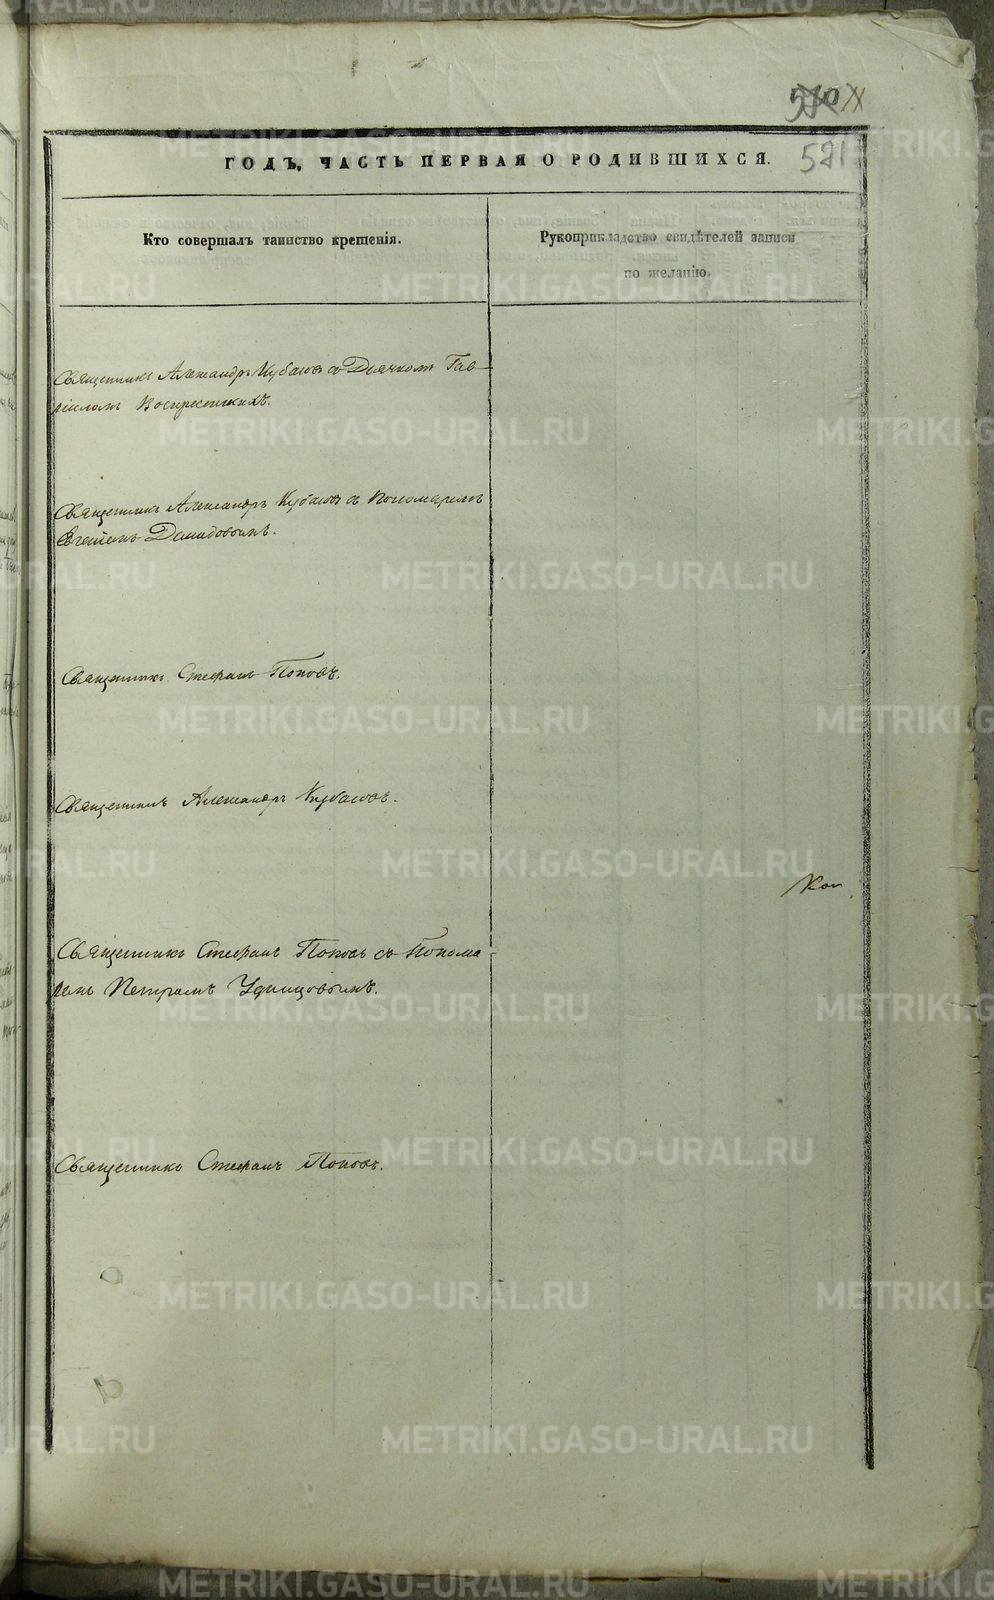 521
ГОДЪ, ЧАСТЬ ПЕРВАЯ О РОДИВШИХСЯ.
Кто совершалъ таинство крещенія.
Рукоприкладство свидѣтелей записи
по желанію.
Священникъ Александръ Кубасовъ съ Дьячкомъ Гав-
ріиломъ Воскресенскихъ.
Священникъ Александръ Кубасовъ съ Пономаремъ
Евгеніемъ Демидовымъ.
Священникъ Стефанъ Поповъ.
Священникъ Александръ Кубасовъ.
Священникъ Стефанъ Поповъ съ Понома-
ремъ Петромъ Удинцовымъ.
Священникъ Стефанъ Поповъ.
METRIKI.GASO-URAL.RU